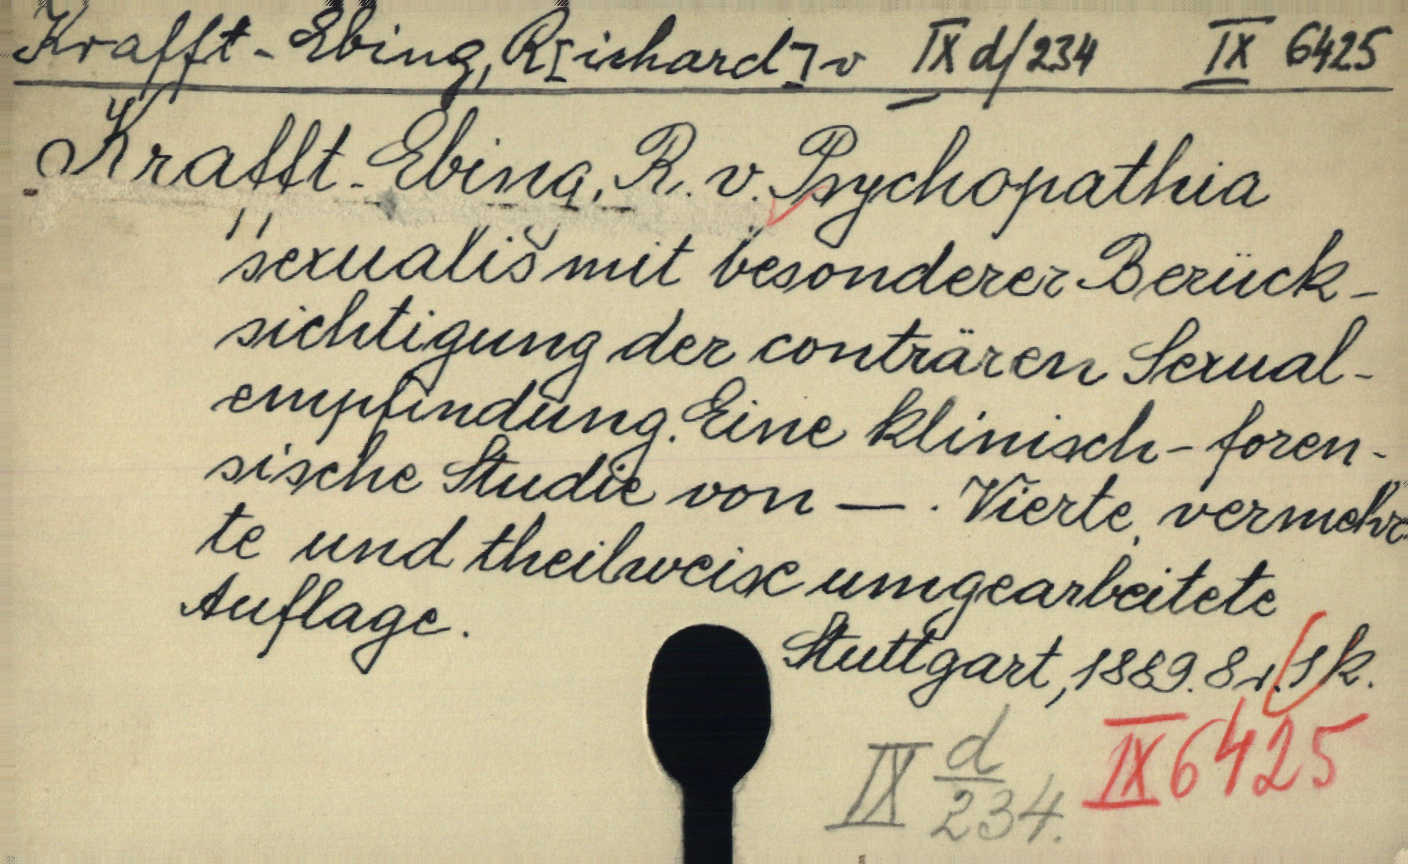 Krafft-Ebing, R[ichard] v IX d/234 IX 6425
Krafft-Ebing, R. v. Psychopathia
sexualis mit besonderer Berück-
sichtigung der conträren Sexual-
empfindung. Eine klinisch-foren-
sische Studie von — . Vierte, vermehr-
te und theilweise umgearbeitete
Auflage.
Stuttgart, 1889. 8r. 1 k.
IX d/234. IX 6425